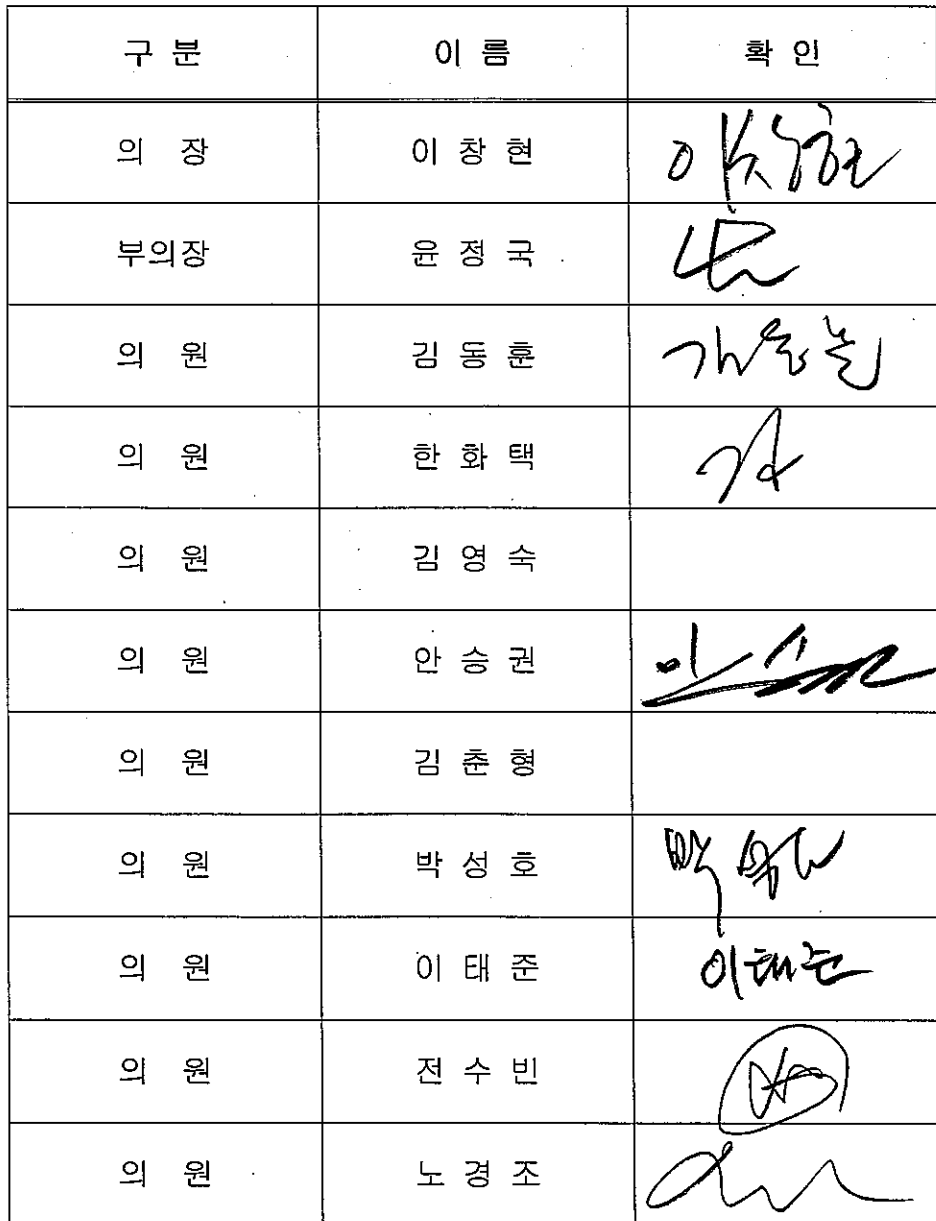 구 분 이 름 확 인
의 장 이 창 현 이창현
부의장 윤 정 국
의 원 김 동 훈 김동훈
의 원 한 화 택
의 원 김 영 숙
의 원 안 승 권
의 원 김 춘 형
의 원 박 성 호
의 원 이 태 준 이태준
의 원 전 수 빈
의 원 노 경 조